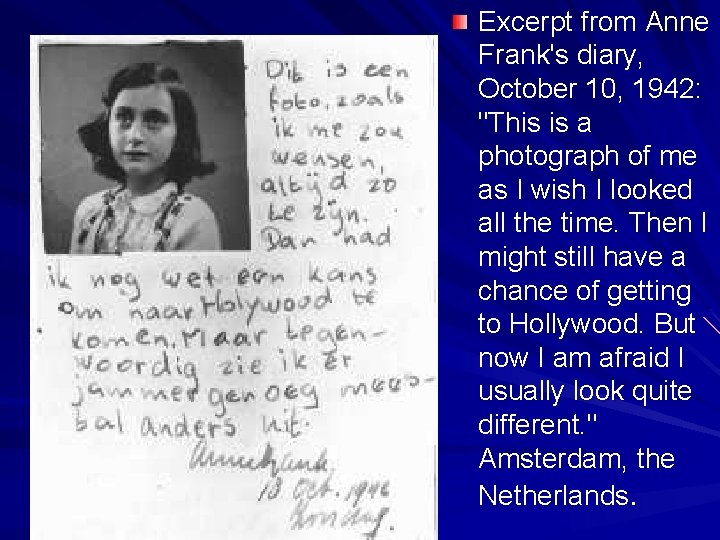 Dit is een
foto, zoals
ik me zou
wensen,
altijd zo
te zijn.
Dan had
ik nog wel een kans
om naar Holywood te
komen. Maar tegen-
woordig zie ik er
jammer genoeg mees-
tal anders uit.
Annefrank.
10 Oct. 1942
Zondag.
Excerpt from Anne
Frank's diary,
October 10, 1942:
"This is a
photograph of me
as I wish I looked
all the time. Then I
might still have a
chance of getting
to Hollywood. But
now I am afraid I
usually look quite
different. "
Amsterdam, the
Netherlands.